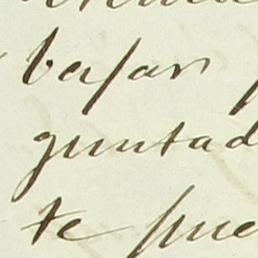 basar
guntad
te pue